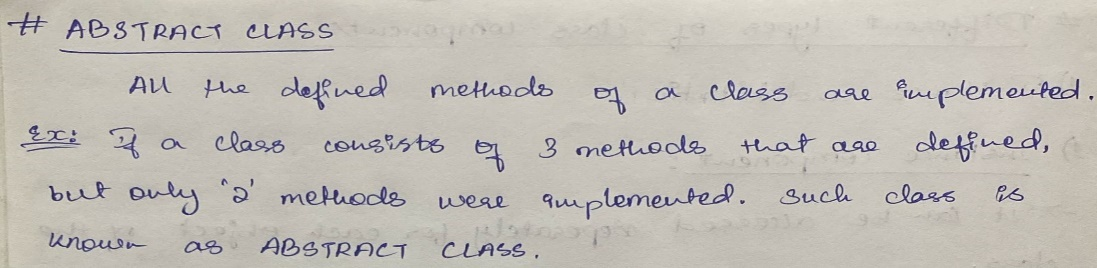 # ABSTRACT CLASS
All the defined methods of a class are implemented.
Ex: If a class consists of 3 methods that are defined,
but only '2' methods were implemented. Such class is
known as ABSTRACT CLASS.